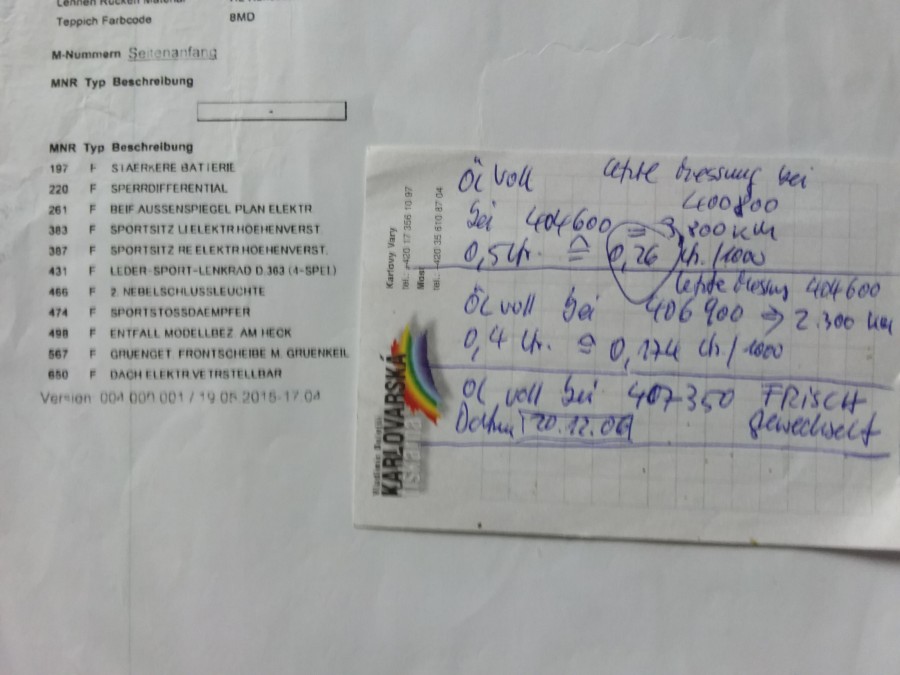 Teppich Farbcode 8MD
M-Nummern Seitenanfang
MNR Typ Beschreibung
-
MNR Typ Beschreibung
197 F STAERKERE BATTERIE
220 F SPERRDIFFERENTIAL
261 F BEIF AUSSENSPIEGEL PLAN ELEKTR
383 F SPORTSITZ LI ELEKTR HOEHENVERST
387 F SPORTSITZ RE ELEKTR HOEHENVERST.
431 F LEDER-SPORT-LENKRAD D.363 (4-SPEI.)
466 F 2. NEBELSCHLUSSLEUCHTE
474 F SPORTSTOSSDAEMPFER
498 F ENTFALL MODELLBEZ. AM HECK
567 F GRUENGET FRONTSCHEIBE M. GRUENKEIL
650 F DACH ELEKTR.VETRSTELLBAR
Version 004.000.001 / 19.05.2015-17.04
Öl voll letzte Messung bei
400800
bei 404600 = 3.800 km
0,5 ltr. ≙ 0,26 ltr./1000
letzte Messung 404600
Öl voll bei 406900 → 2.300 km
0,4 ltr. ≙ 0,174 ltr./1000
Öl voll bei 407350 FRISCH
Datum 20.12.06 gewechselt
Karlovy Vary
tel.: +420 17 356 10 97
Most
tel.: +420 35 610 87 04
KARLOVARSKÁ